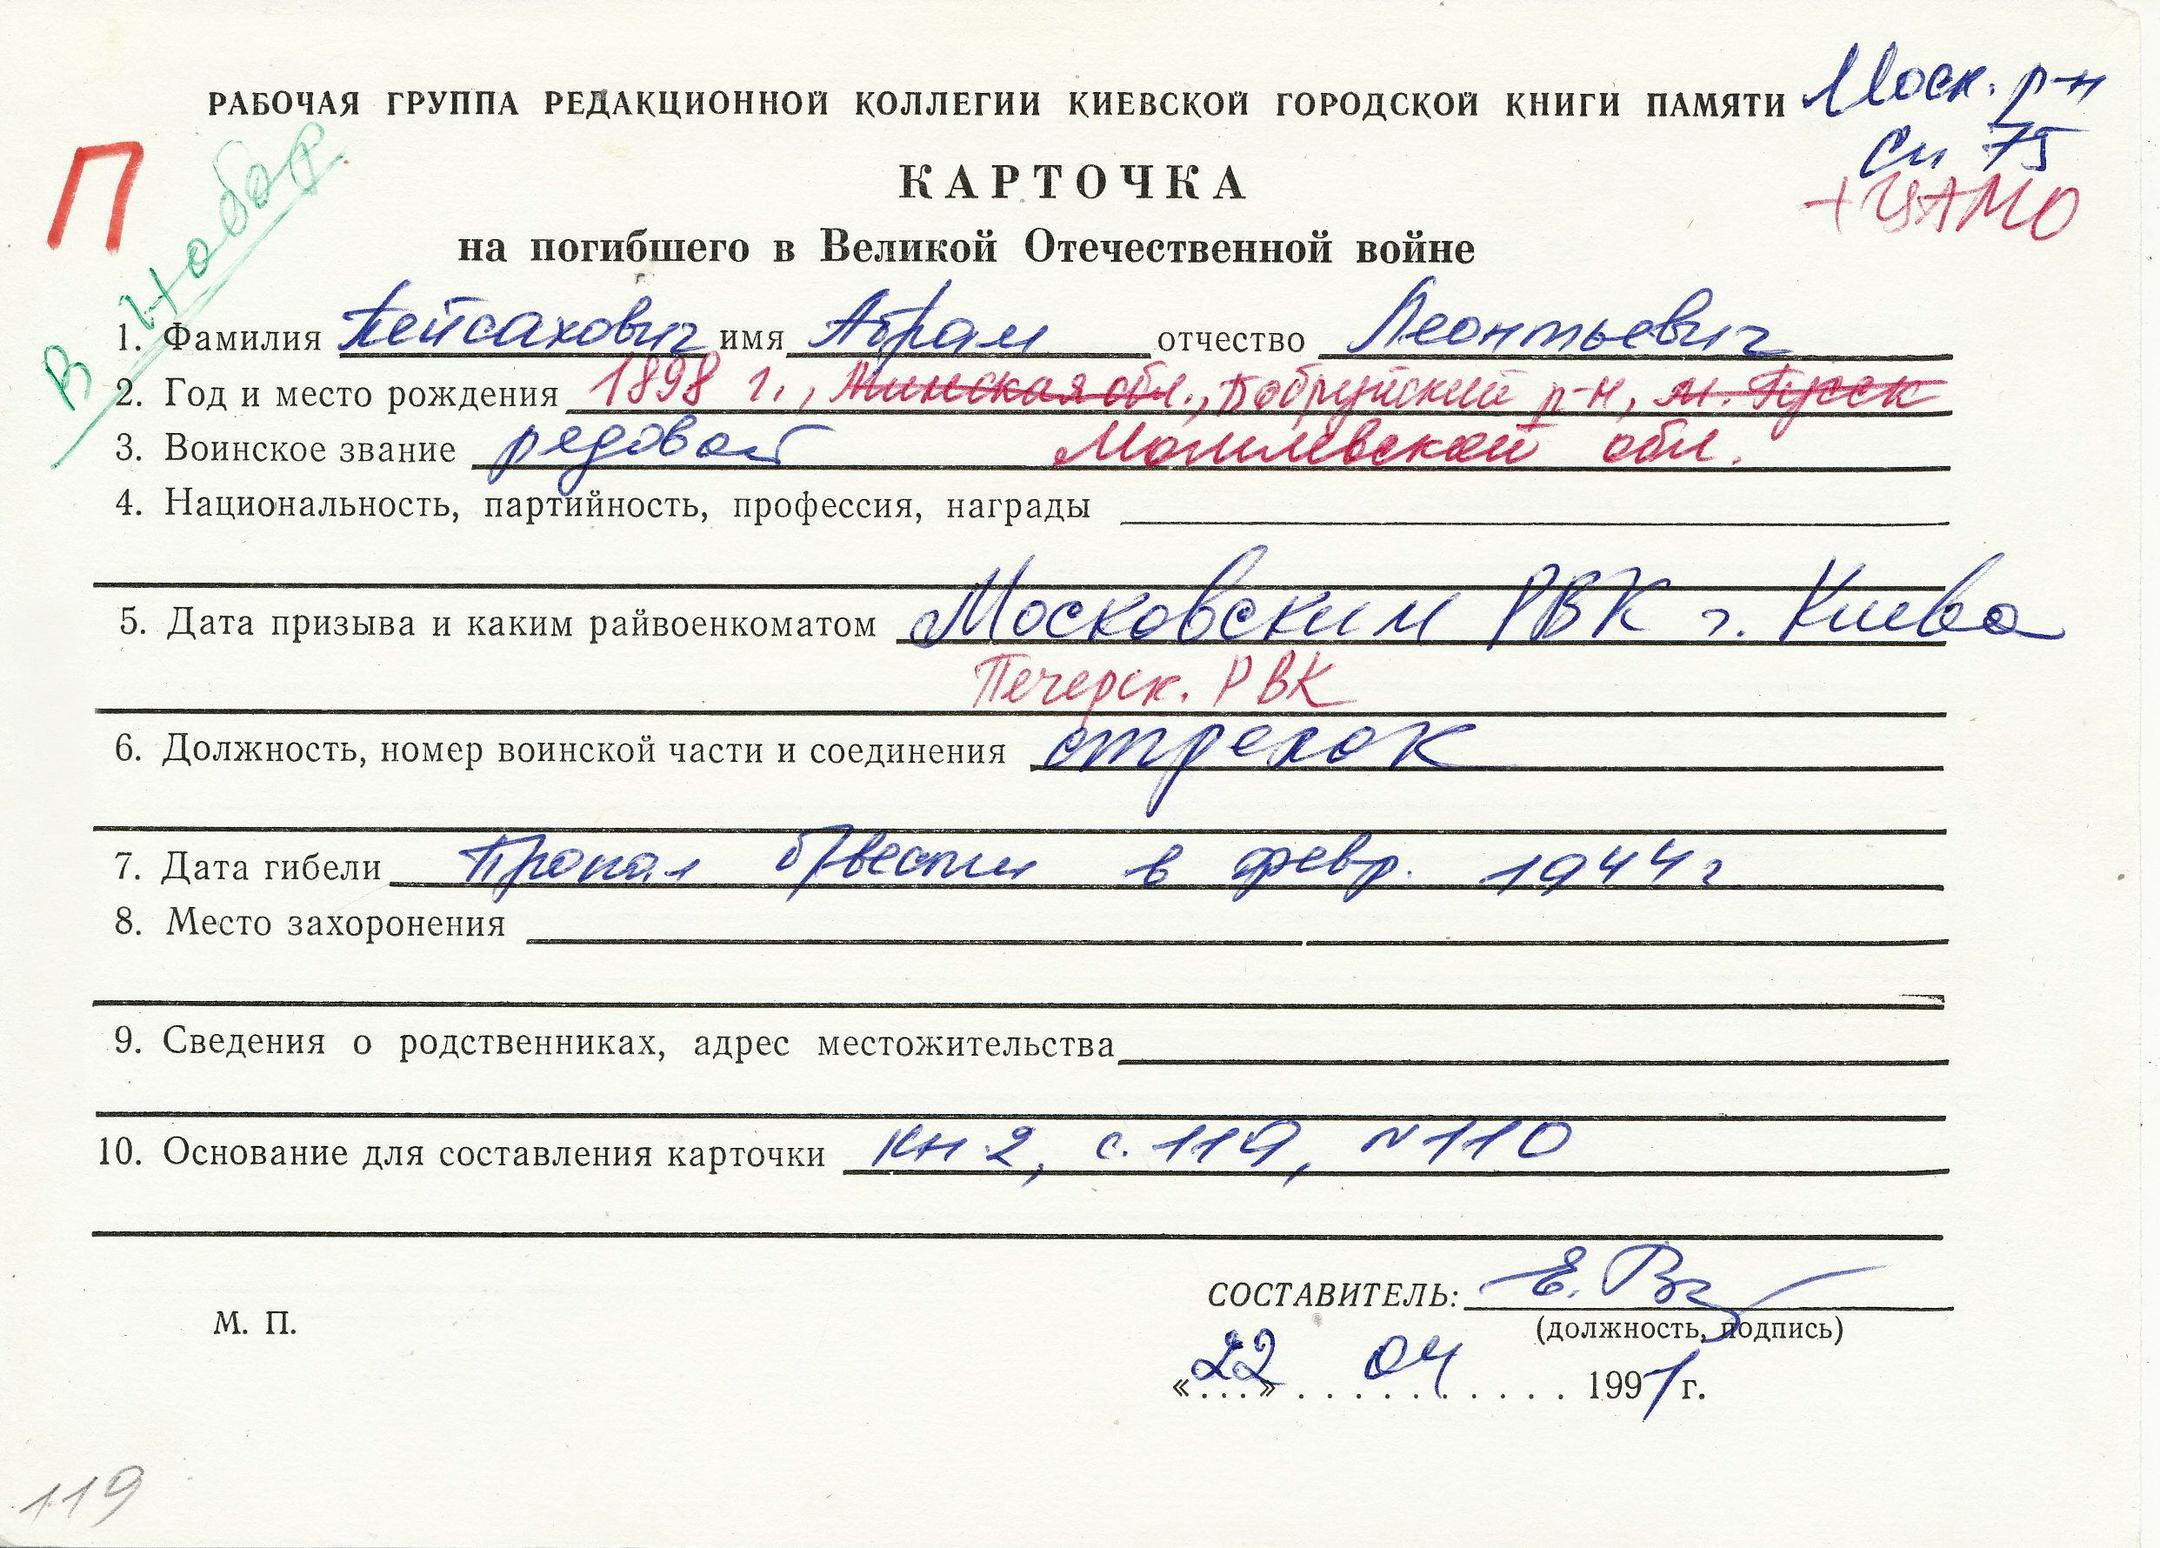 РАБОЧАЯ ГРУППА РЕДАКЦИОННОЙ КОЛЛЕГИИ КИЕВСКОЙ ГОРОДСКОЙ КНИГИ ПАМЯТИ Моск. р-н
Сп 75
+ ЦАМО
П
В набор
КАРТОЧКА
на погибшего в Великой Отечественной войне
1. Фамилия Пейсахович имя Абрам отчество Леонтьевич
2. Год и место рождения 1898 г., Минская обл., Бобруйский р-н, м. Гусск
3. Воинское звание рядовой Могилевской обл.
4. Национальность, партийность, профессия, награды
5. Дата призыва и каким райвоенкоматом Московским РВК г. Киева
Печерск. РВК
6. Должность, номер воинской части и соединения стрелок
7. Дата гибели Пропал б/вести в февр. 1944 г
8. Место захоронения
9. Сведения о родственниках, адрес местожительства
10. Основание для составления карточки кн 2, с. 119, № 110
СОСТАВИТЕЛЬ: Е.
М. П.
(должность, подпись)
«22» 04 1991 г.
119